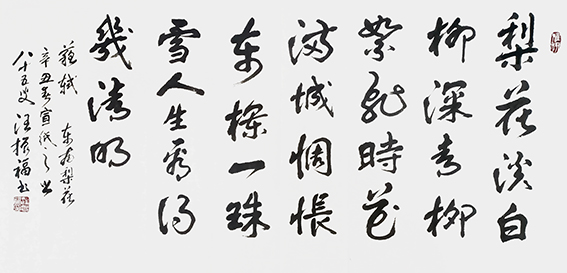 梨花淡白
柳深青柳
絮飛時花
滿城惆悵
东欄一珠
雪人生看得
幾清明
蘇軾 东栏梨花
辛丑春宣
八十五叟汪振福书